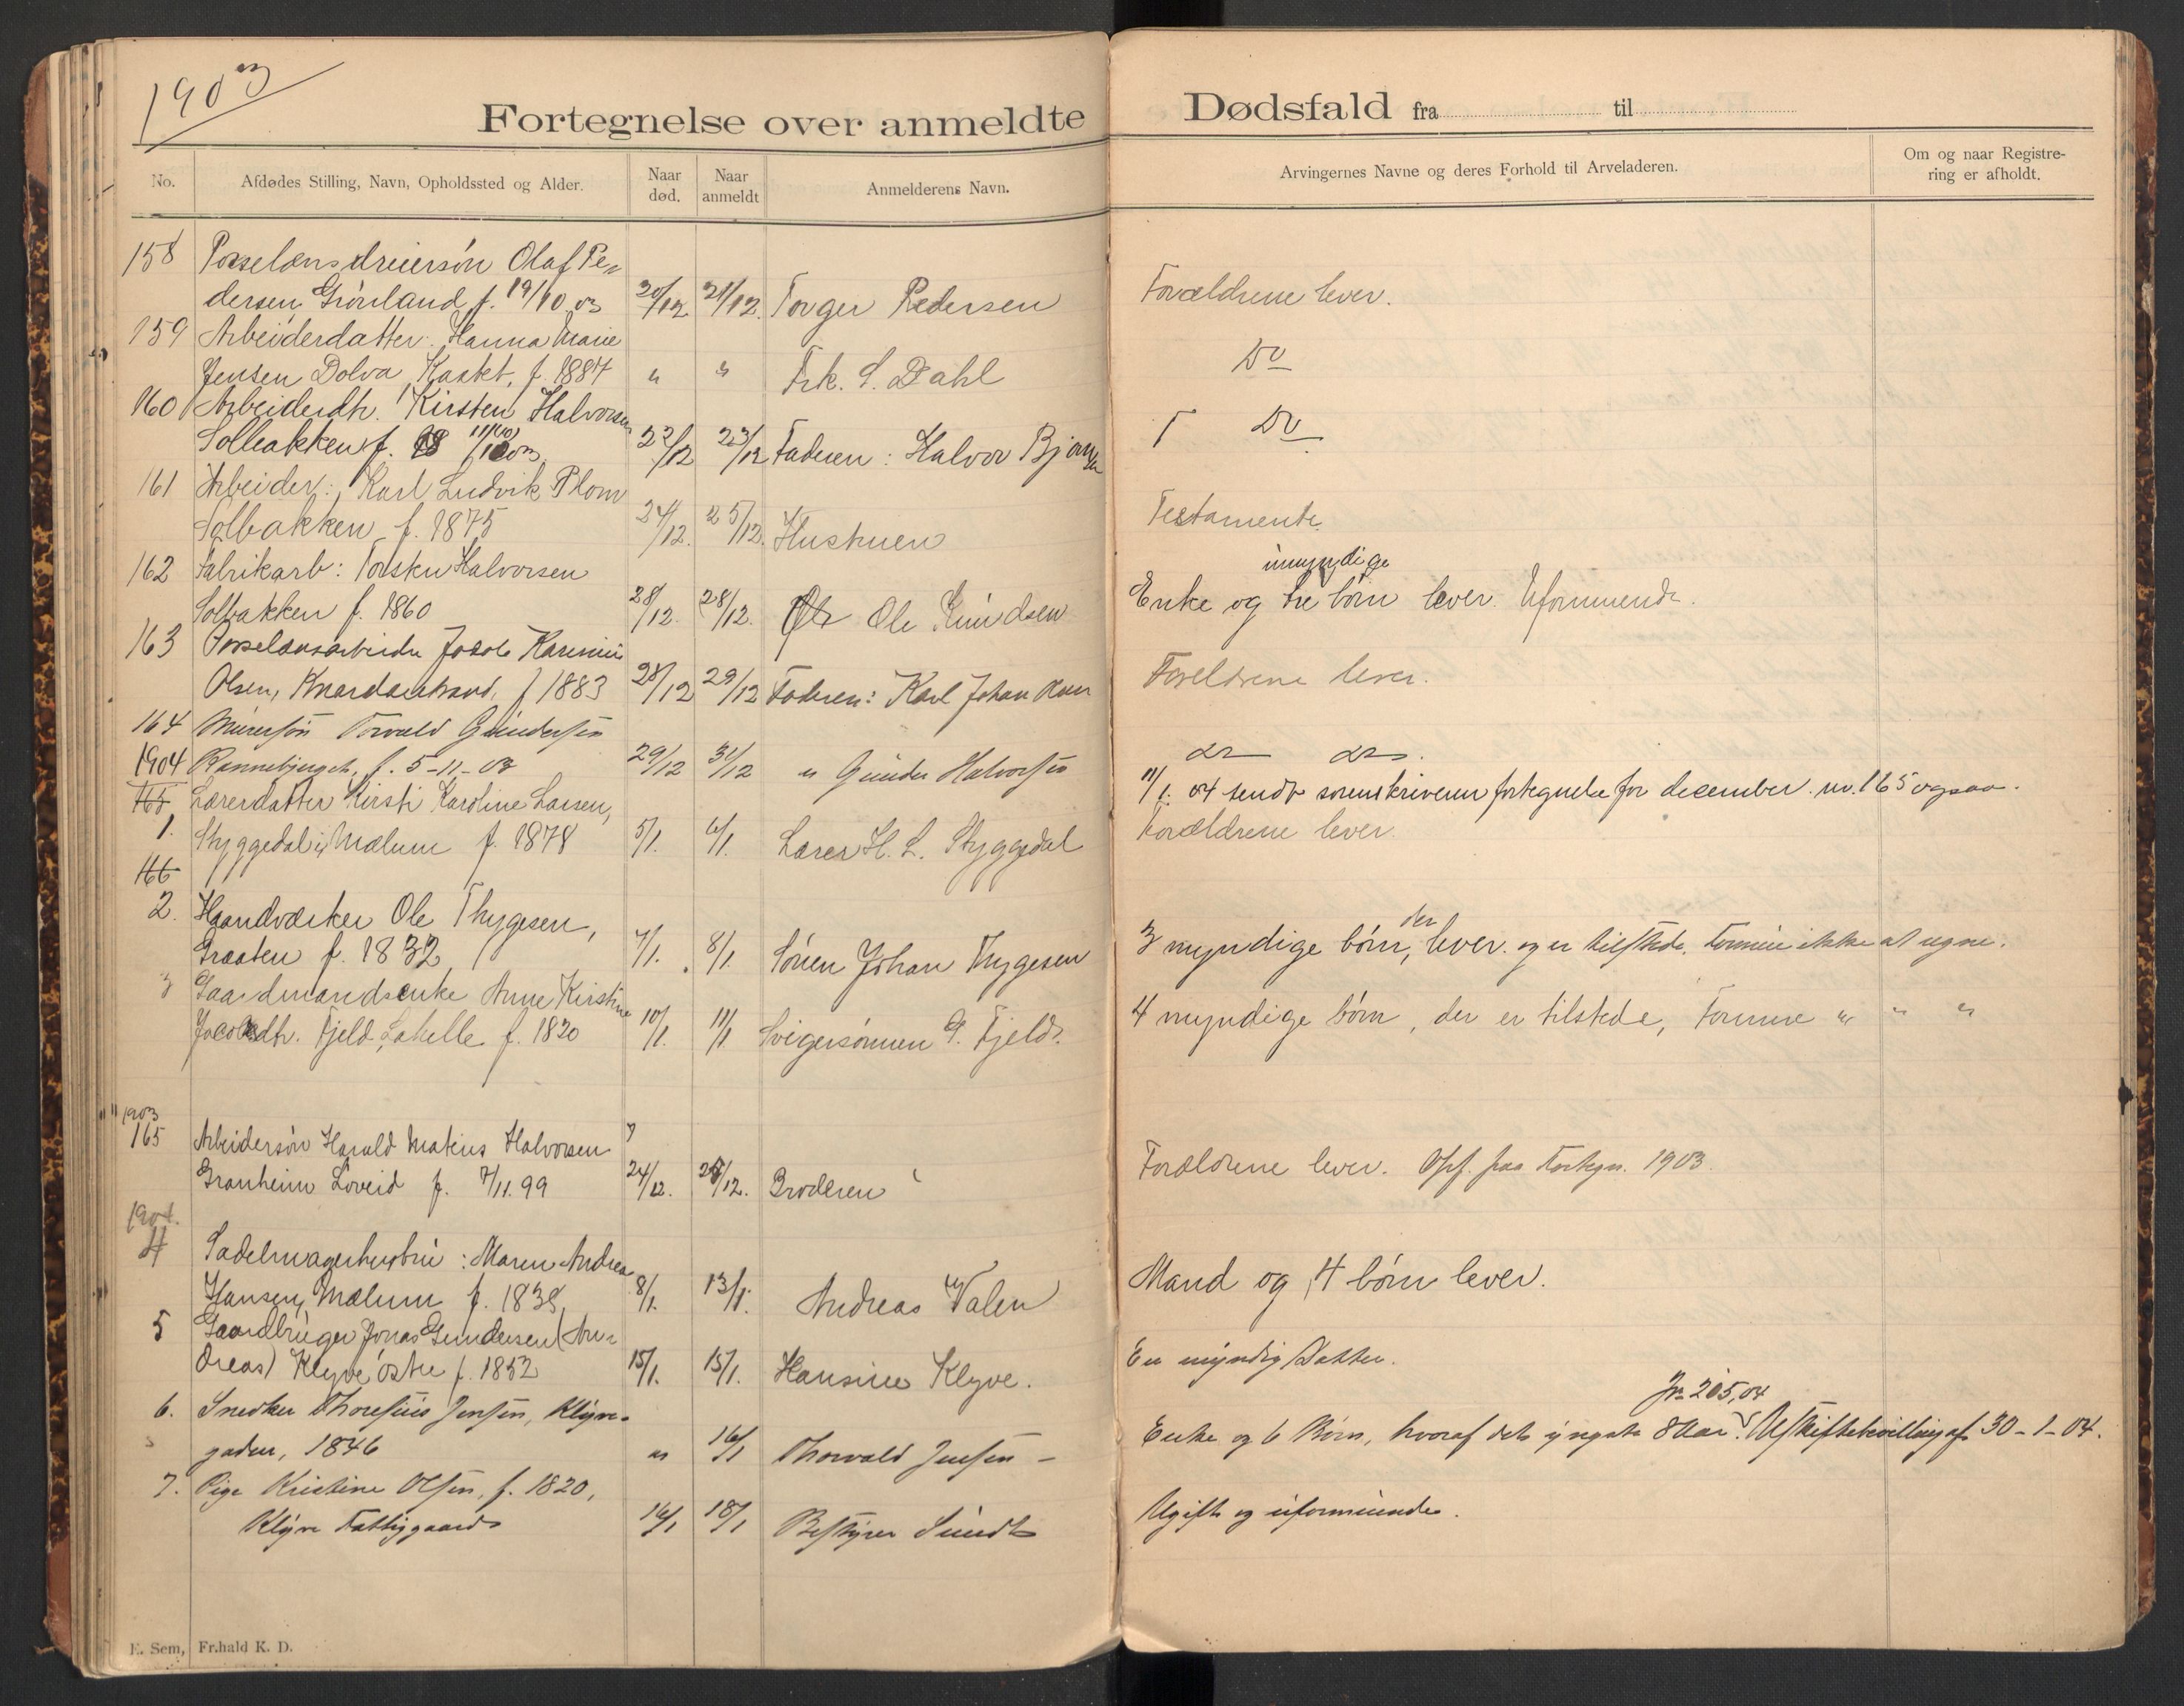 1903
Fortegnelse over anmeldte Dødsfald fra til
No.
Afdødes Stilling, Navn, Opholdssted og Alder.
Naar død.
Naar anmeldt
Anmelderens Navn.
Arvingernes Navne og deres Forhold til Arveladeren.
Om og naar Registrering er afholdt.
158 Porselænsdreiersön Olaf Pe-
dersen Grönland f. 19/10 03 20/12 21/12. Torger Pedersen Forældrene lever.
159 Arbeiderdatter: Hanna Marie
Jensen Dolva Kastet, f. 1887 " " Frk. S. Dahl Do
160 Arbeiderdtr. Kirsten Halvorsen
Solbakken f. 11/10 03 22/12 23/12 Faderen: Halvor Do
161 Arbeider: Karl Ludvik Plom
Solbakken f. 1875 24/12. 25/12. Hustruen Testamente
162 Fabrikarb: Torsten Halvorsen
umyndige
Solbakken f. 1860 28/12. 28/12. Ole Knudsen Enke og tre börn lever. Uformuende.
163 Porselænsarbeider Jacob
Olsen, f 1883 28/12 29/12 Faderen: Karl Johan Forældrene lever.
164 Murersön Torvald Gundersen
1904 f. 5-11-03 29/12 31/12 " Gunder Halvorsen do do.
11/1. 04 sendt sorenskriveren fortegnelse for december. nr. 165 ogsaa.
165 Lærerdatter Kirsti Karoline Larsen,
1. Styggedal i Mælum f. 1878 5/1. 6/1. Lærer H. L. Styggedal Forældrene lever.
166
2. Haandværker Ole Thygesen,
der
Graaten f. 1832 7/1. 8/1. Sören Johan Thygesen 3 myndige börn, lever. og er tilstede. Formue ikke at regne.
3 Gaardmandsenke Anne Kirstine
Jacobsdtr. Fjeld, f. 1820 10/1. 11/1 Svigersönnen G. Fjeld. 4 myndige börn, der er tilstede, Formue " " "
1903
165 Arbeidersön Harald Matius Halvorsen
Granheim Löveid f. 7/11. 99 24/12. 28/12. Broderen Forældrene lever. Opf. paa Fortegn. 1903.
1904.
4 Sadelmagerhustru: Maren Andrea
Hansen, Mælum f. 1838 8/1. 13/1. Andreas Valen Mand og 4 börn lever.
5 Gaardbruger Jonas Gundersen (An-
dreas) Klyve östre f. 1852 15/1. 15/1. Hansine Klyve. En myndig Datter.
Jr. 205,04
6. Snedker Thoresius Jensen, Klyve-
gaden, 1846 " 16/1 Thorvald Jensen - Enke og 6 Börn, hvoraf det yngste 8 Aar. Uskiftebevilling af 30-1-04.
7. Pige Kristine Olsen, f. 1820,
Klyve Fattiggaard 16/1 18/1 Bestyrer Sundt Ugift og uformuende.
E. Sem, Fr.hald K. D.